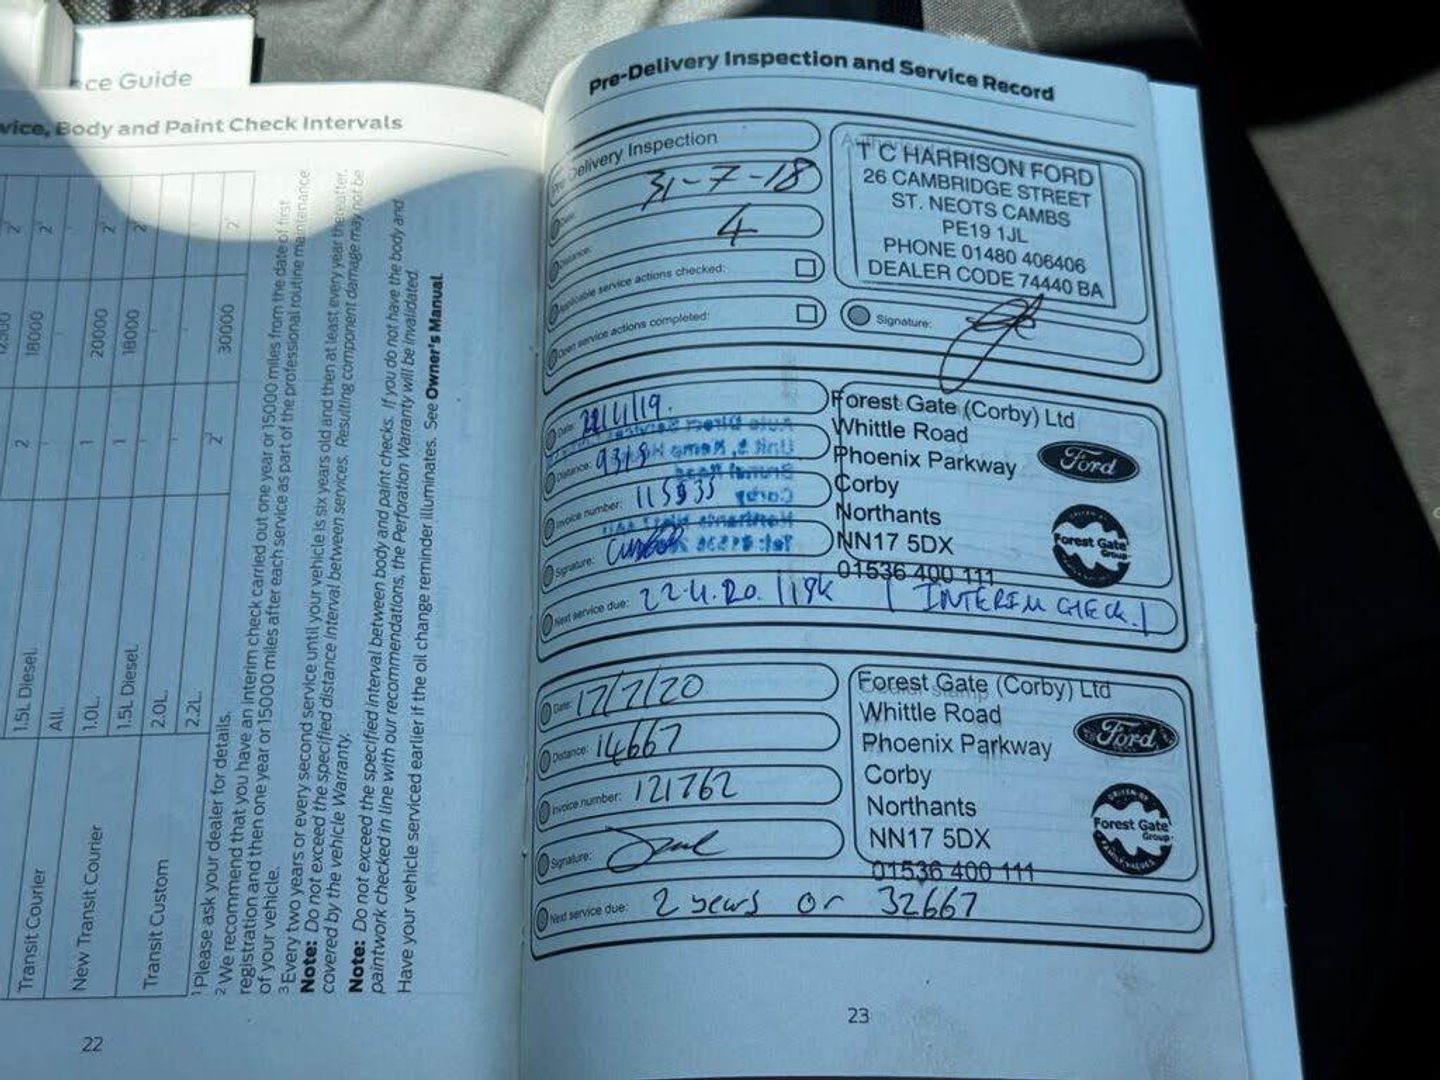 ce Guide
vice, Body and Paint Check Intervals
2
18000
2
1.5L Diesel.
Transit Courier
All.
20000
1
1.0L.
New Transit Courier
18000
1
1.5L Diesel
2.0L.
Transit Custom
30000
2
2.2L.
1 Please ask your dealer for details.
2 We recommend that you have an interim check carried out one year or 15000 miles from the date of first
registration and then one year or 15000 miles after each service as part of the professional routine maintenance
of your vehicle.
3 Every two years or every second service until your vehicle is six years old and then at least every year thereafter.
Note: Do not exceed the specified distance interval between services. Resulting component damage may not be
covered by the vehicle Warranty.
Note: Do not exceed the specified interval between body and paint checks. If you do not have the body and
paintwork checked in line with our recommendations, the Perforation Warranty will be invalidated
Have your vehicle serviced earlier if the oil change reminder illuminates. See Owner's Manual.
22
Pre-Delivery Inspection and Service Record
Pre-Delivery Inspection
Date: 31-7-18
Distance: 4
Applicable service actions checked:
Open service actions completed:
T C HARRISON FORD
26 CAMBRIDGE STREET
ST. NEOTS CAMBS
PE19 1JL
PHONE 01480 406406
DEALER CODE 74440 BA
Signature:
Date:
Distance:
Invoice number:
Signature:
Forest Gate (Corby) Ltd
Whittle Road
Phoenix Parkway
Corby
Northants
NN17 5DX
01536 400 111
Ford
Forest Gate
Group
Next service due: 22.4.20. / 19K / INTERIM CHECK /
Date: 17/7/20
Distance: 14667
Invoice number: 121762
Signature:
Forest Gate (Corby) Ltd
Whittle Road
Phoenix Parkway
Corby
Northants
NN17 5DX
01536 400 111
Ford
Forest Gate
Group
Next service due: 2 years or 32667
23